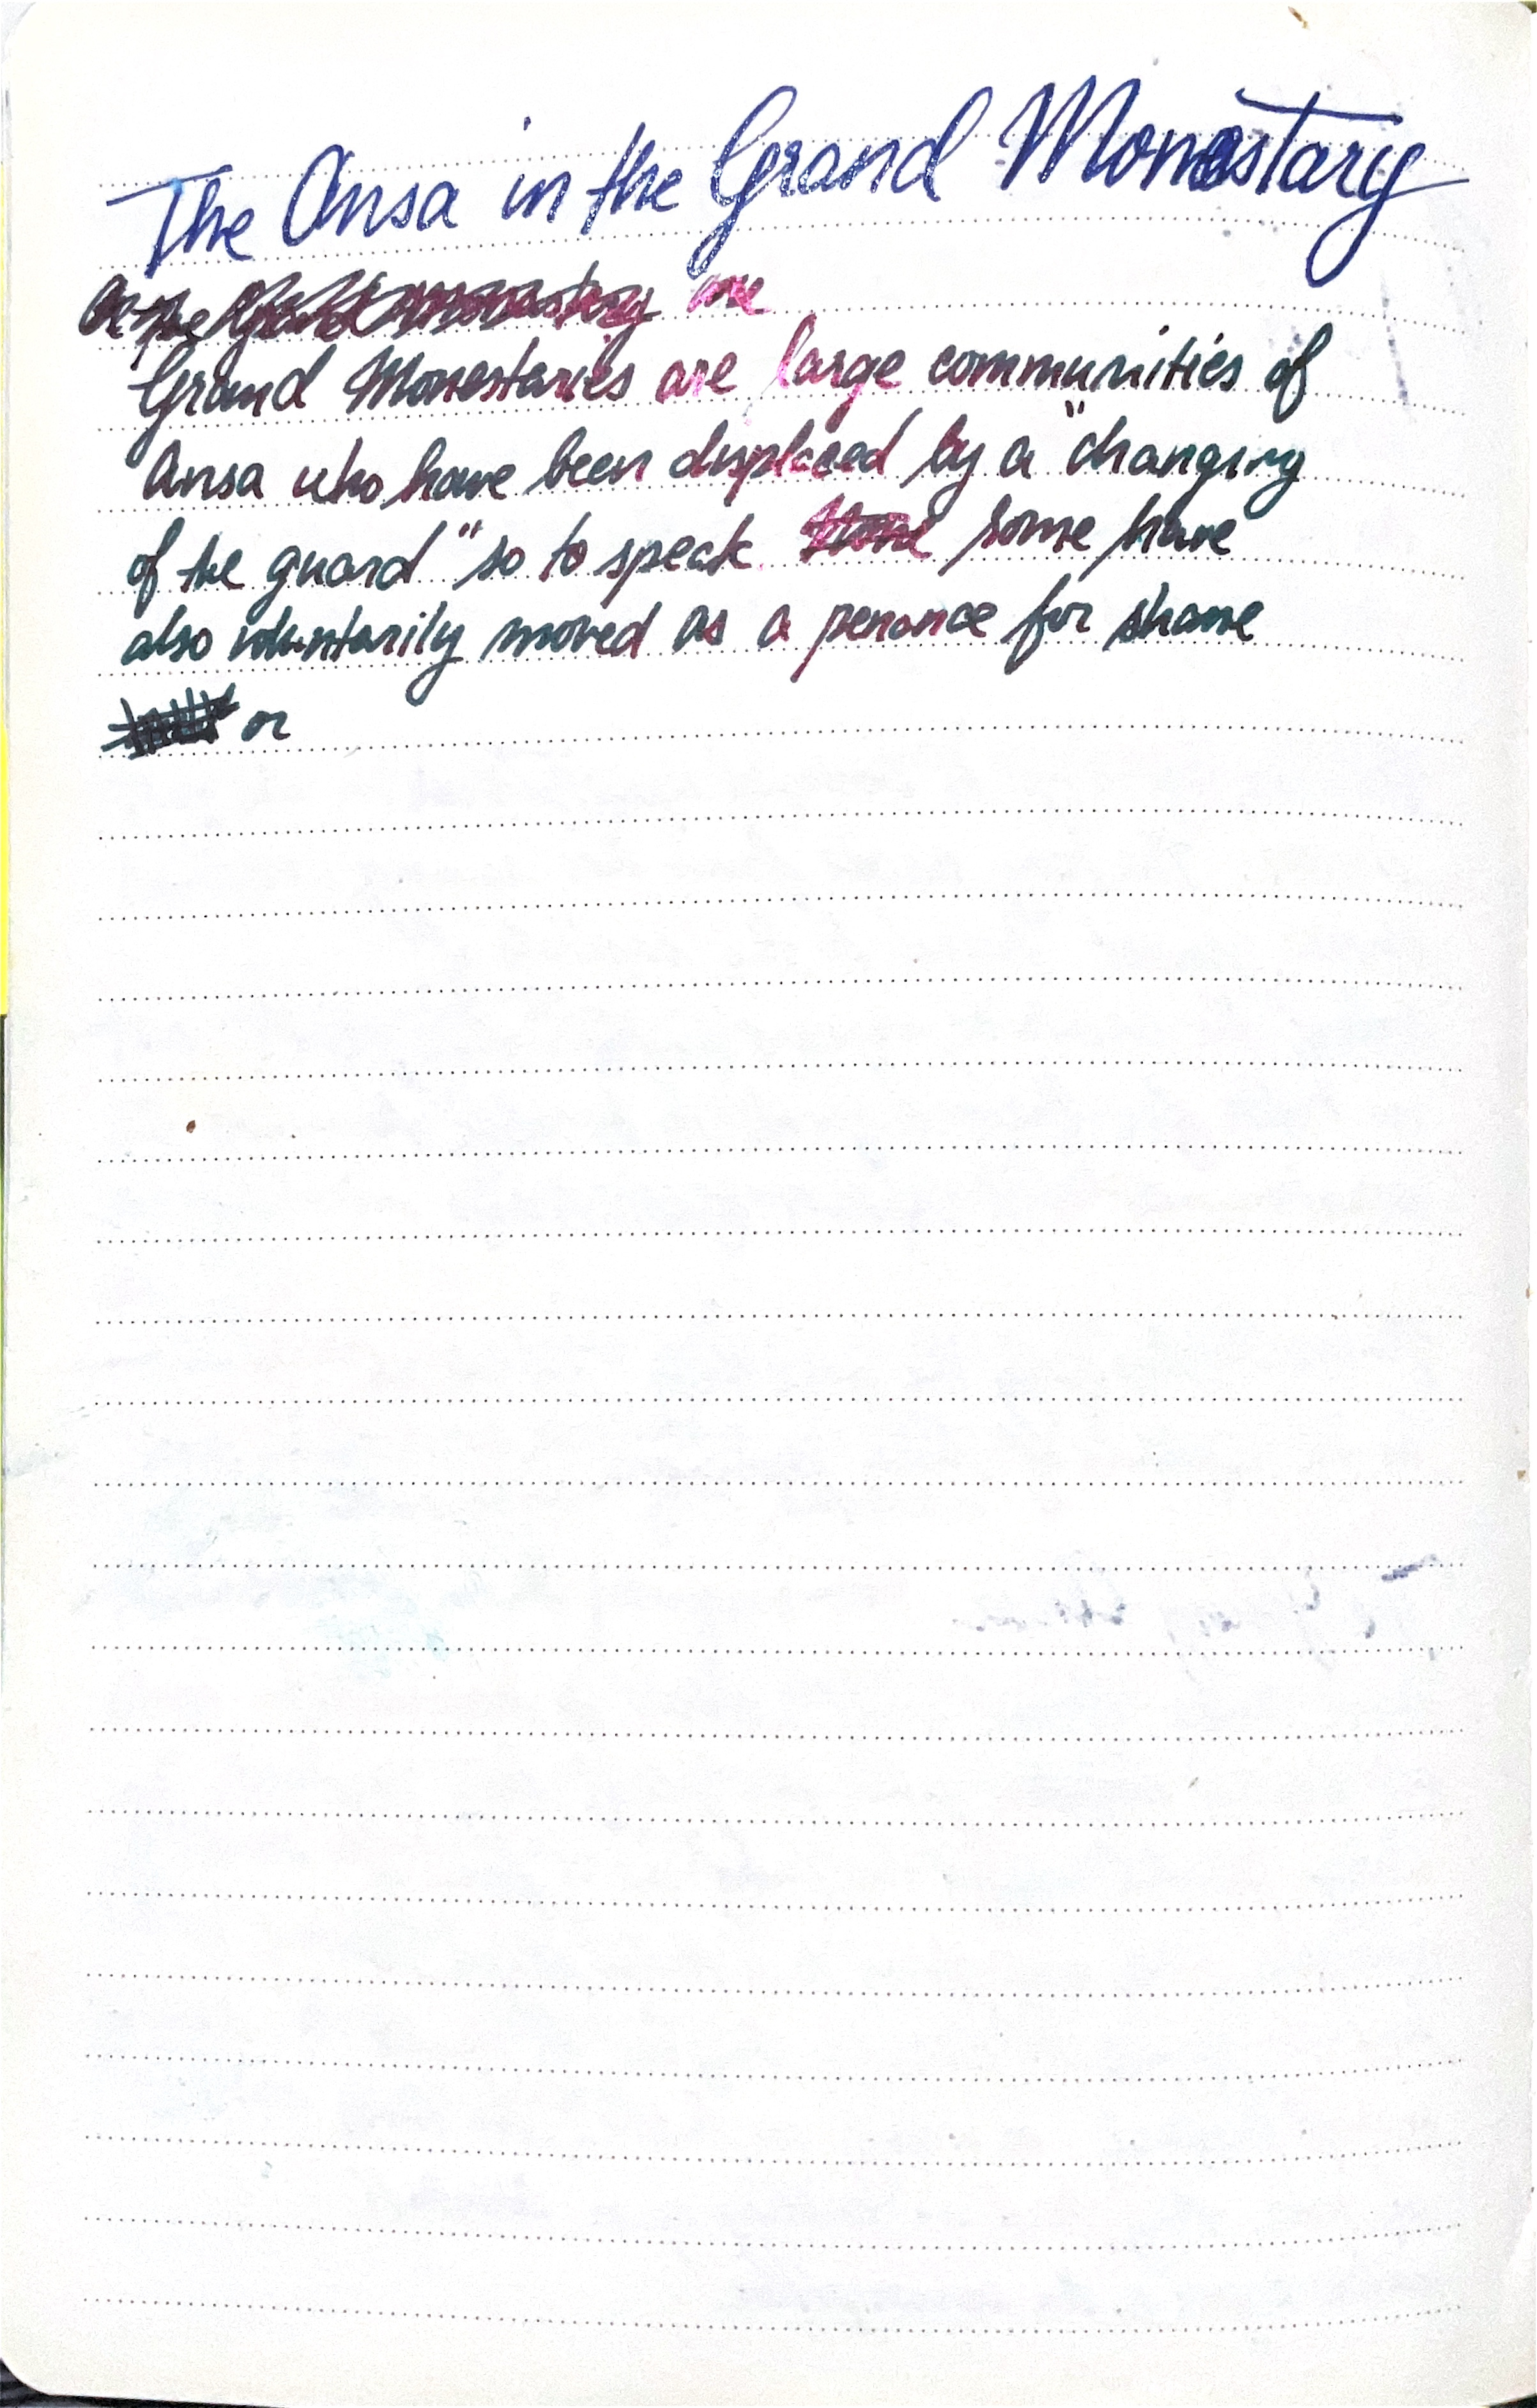 The Ansa in the Grand Monastary
are
Grand Monestaries are large communities of
Ansa who have been displaced by a "changing
of the guard" so to speak. some have
also voluntarily moved as a penance for shame
or